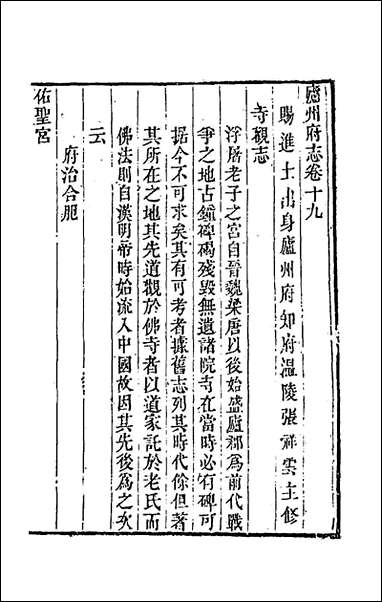 廬州府志卷十九
賜進士出身廬州府知府溫陵張祥雲主修
寺觀志
浮屠老子之宮自晉魏梁唐以後始盛廬郡為前代戰
爭之地古鐘碑碣殘毀無遺諸院寺在當時必有碑可
据今不可求矣其有可考者據舊志列其時代餘但著
其所在之地其先道觀於佛寺者以道家託於老氏而
佛法則自漢明帝時始流入中國故因其先後為之次
云
府治合肥
佑聖宮